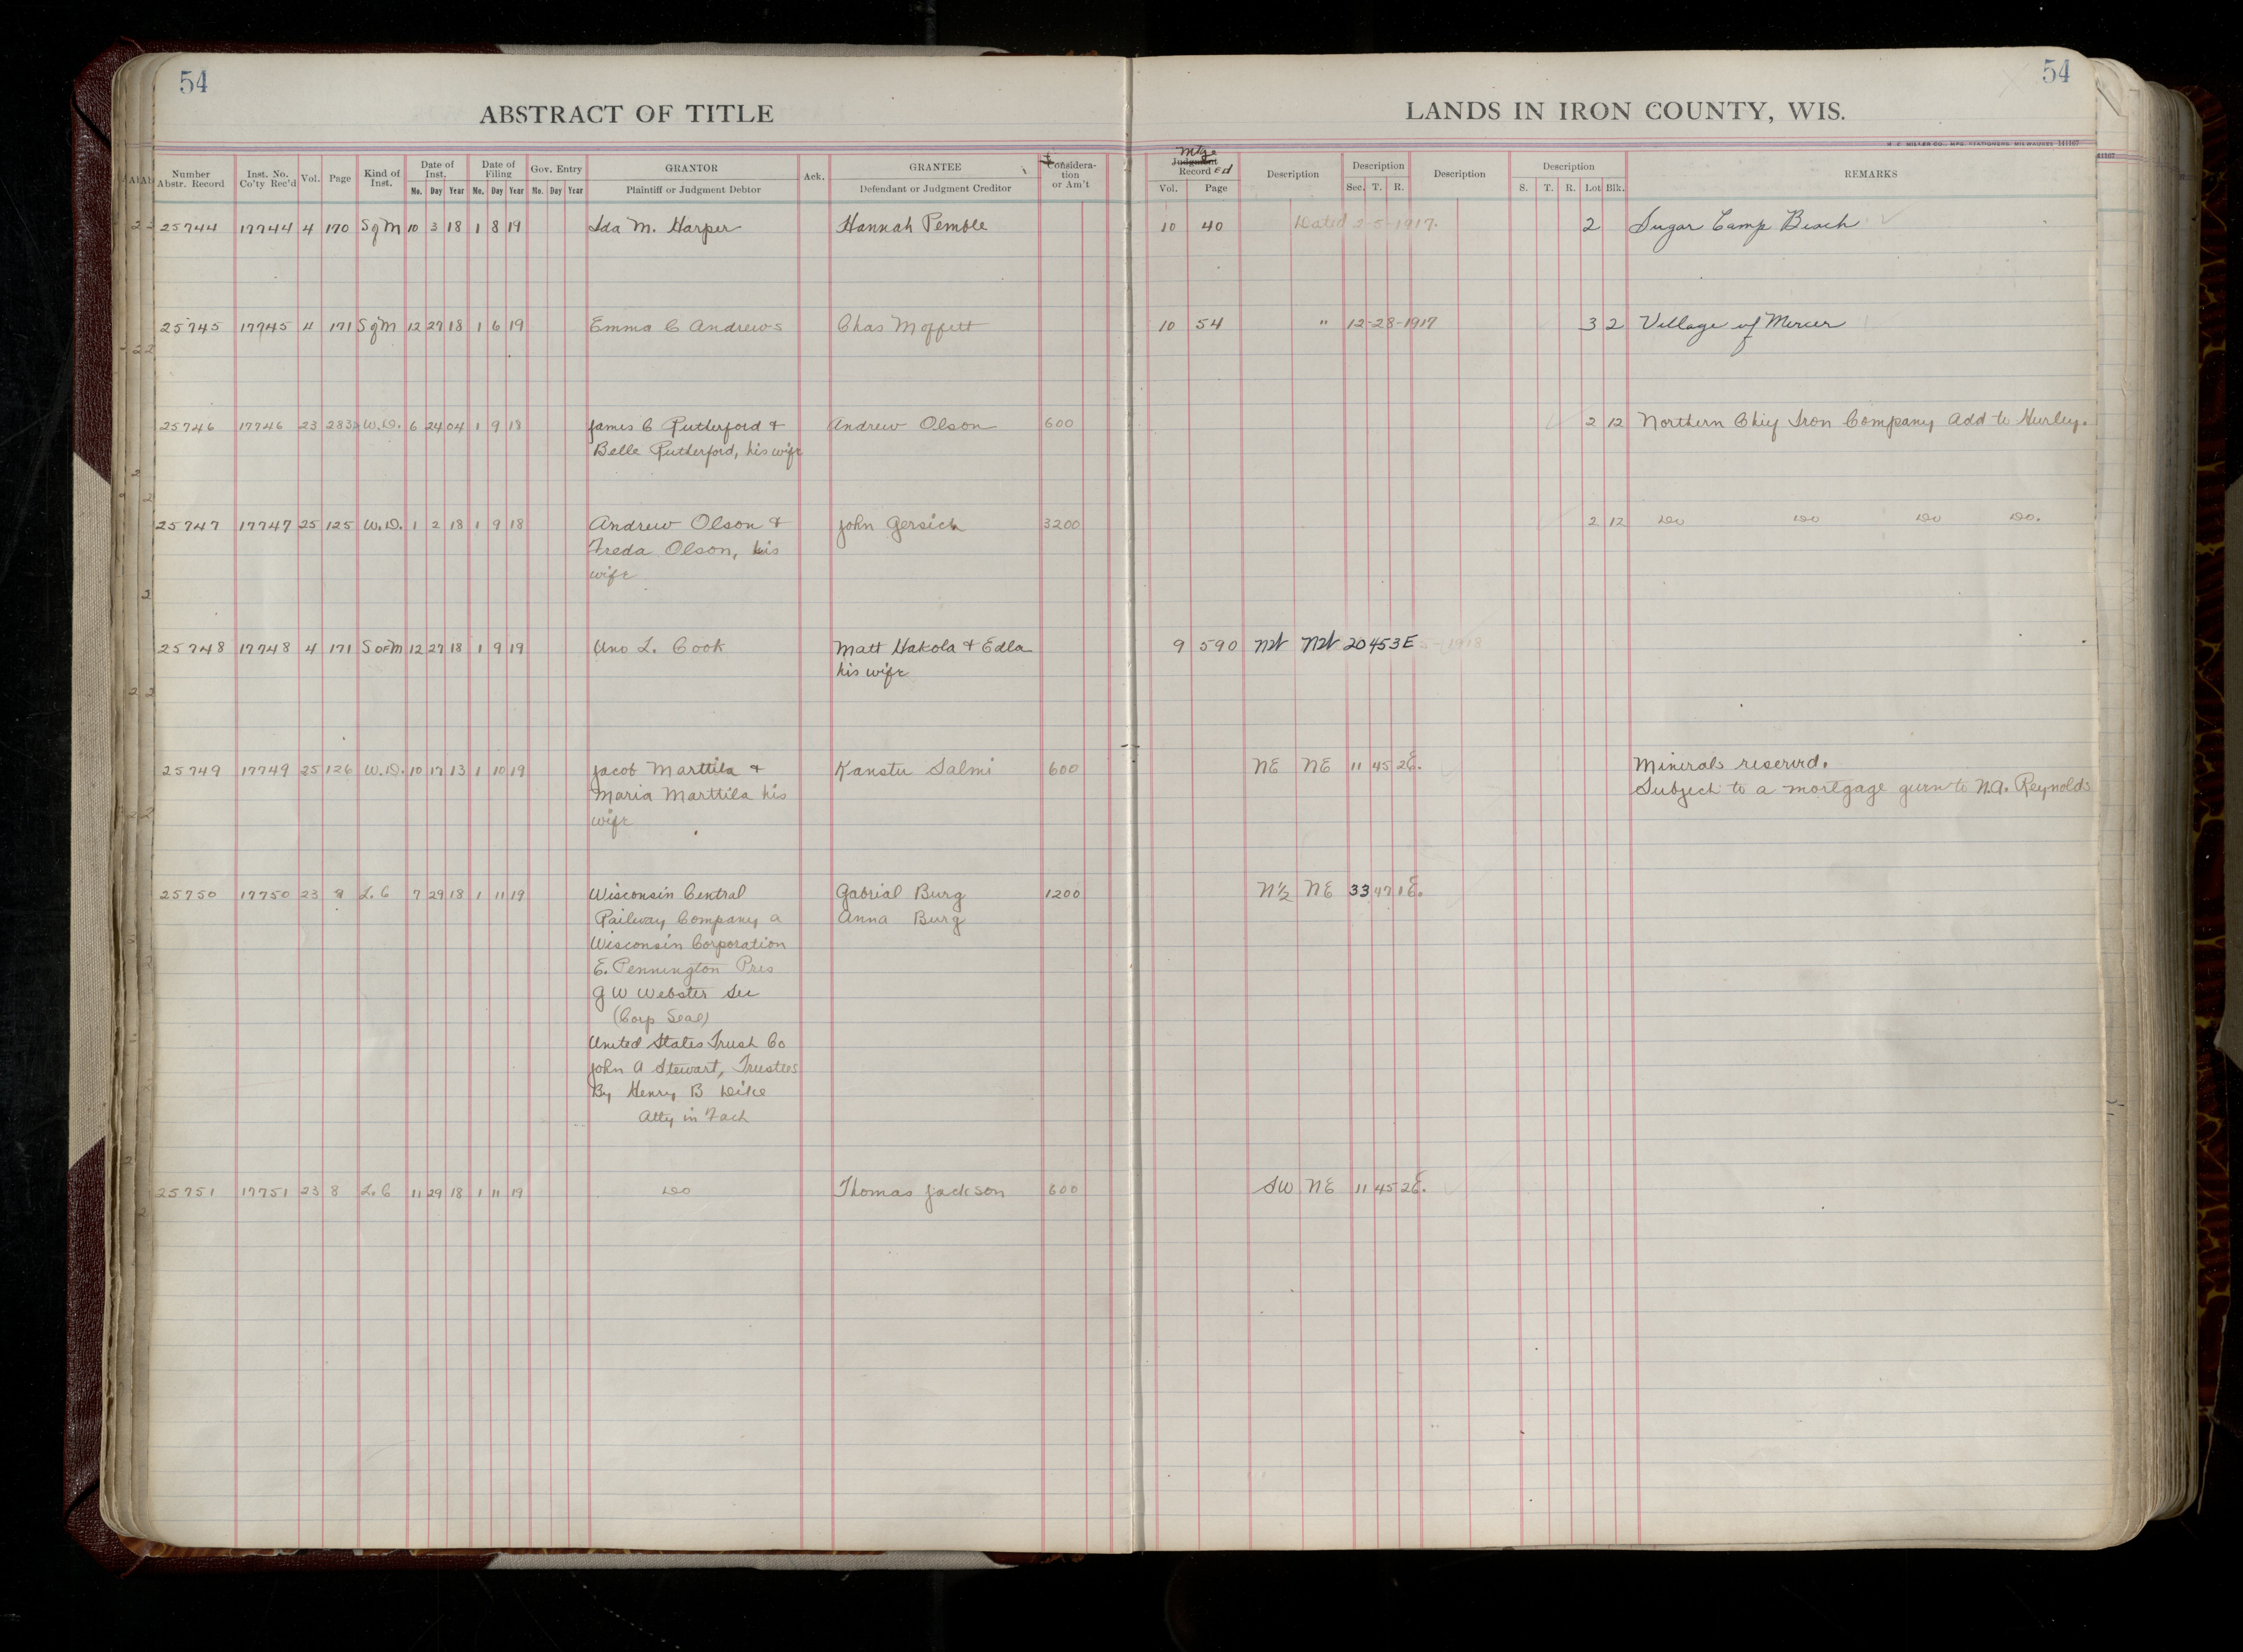 54
54
ABSTRACT OF TITLE
LANDS IN IRON COUNTY, WIS.
H. C. MILLER CO., MFG. STATIONERS, MILWAUKEE 141167
Number Abstr. Record Inst. No. Co'ty Rec'd Vol. Page Kind of Inst. Date of Inst. Mo. Day Year Date of Filing Mo. Day Year Gov. Entry Mo. Day Year GRANTOR Plaintiff or Judgment Debtor Ack. GRANTEE Defendant or Judgment Creditor Considera-tion or Am't Mtge Judgment Recorded Vol. Page Description Description Sec. T. R. Description Description S. T. R. Lot Blk. REMARKS
25744 17744 4 170 S of M 10 3 18 1 8 19 Ida M. Harper Hannah Pemble 10 40 Dated 2-5-1917. 2 Sugar Camp Beach
25745 17745 4 171 S of M 12 27 18 1 6 19 Emma C Andrews Chas Moffett 10 54 " 12-28-1917 3 2 Village of Mercer
25746 17746 23 283 W.D. 6 24 04 1 9 18 James C Rutherford & Andrew Olson 600 2 12 Northern Chief Iron Company Add to Hurley.
Belle Rutherford, his wife
25747 17747 25 125 W.D. 1 2 18 1 9 18 Andrew Olson & John Gersich 3200 2 12 Do Do Do Do.
Freda Olson, his
wife
25748 17748 4 171 S of M 12 27 18 1 9 19 Uno L. Cook Matt Hakola & Edla 9 590 NW NW 20 45 3E
his wife
25749 17749 25 126 W.D. 10 17 13 1 10 19 Jacob Marttila & Kanstu Salmi 600 NE NE 11 45 2E. Minerals reserved.
Maria Marttila his Subject to a mortgage given to N.A. Reynolds
wife
25750 17750 23 9 L.C 7 29 18 1 11 19 Wisconsin Central Gabrial Burg 1200 N½ NE 33 47 1E.
Railway Company a Anna Burg
Wisconsin Corporation
E. Pennington Pres
G W Webster Sec
(Corp Seal)
United States Trust Co
John A Stewart, Trustees
By Henry B Dike
Atty in Fact
25751 17751 23 8 L.C 11 29 18 1 11 19 Do Thomas Jackson 600 SW NE 11 45 2E.